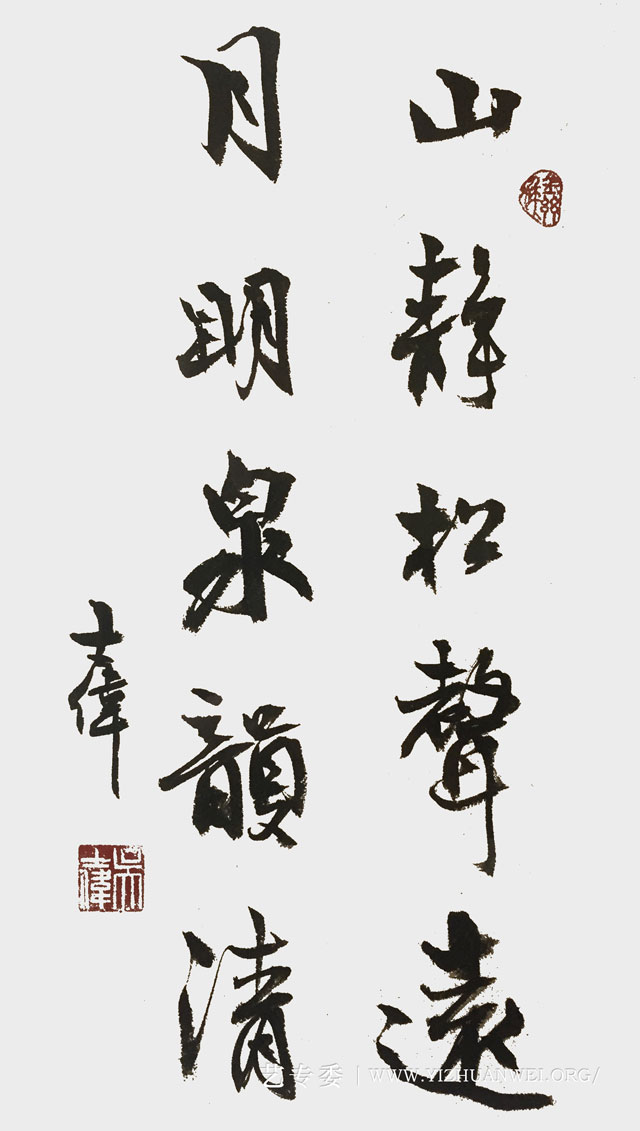 山靜松聲遠
月明泉韻清
士偉
吴士偉
艺专委 | WWW.YIZHUANWEI.ORG/